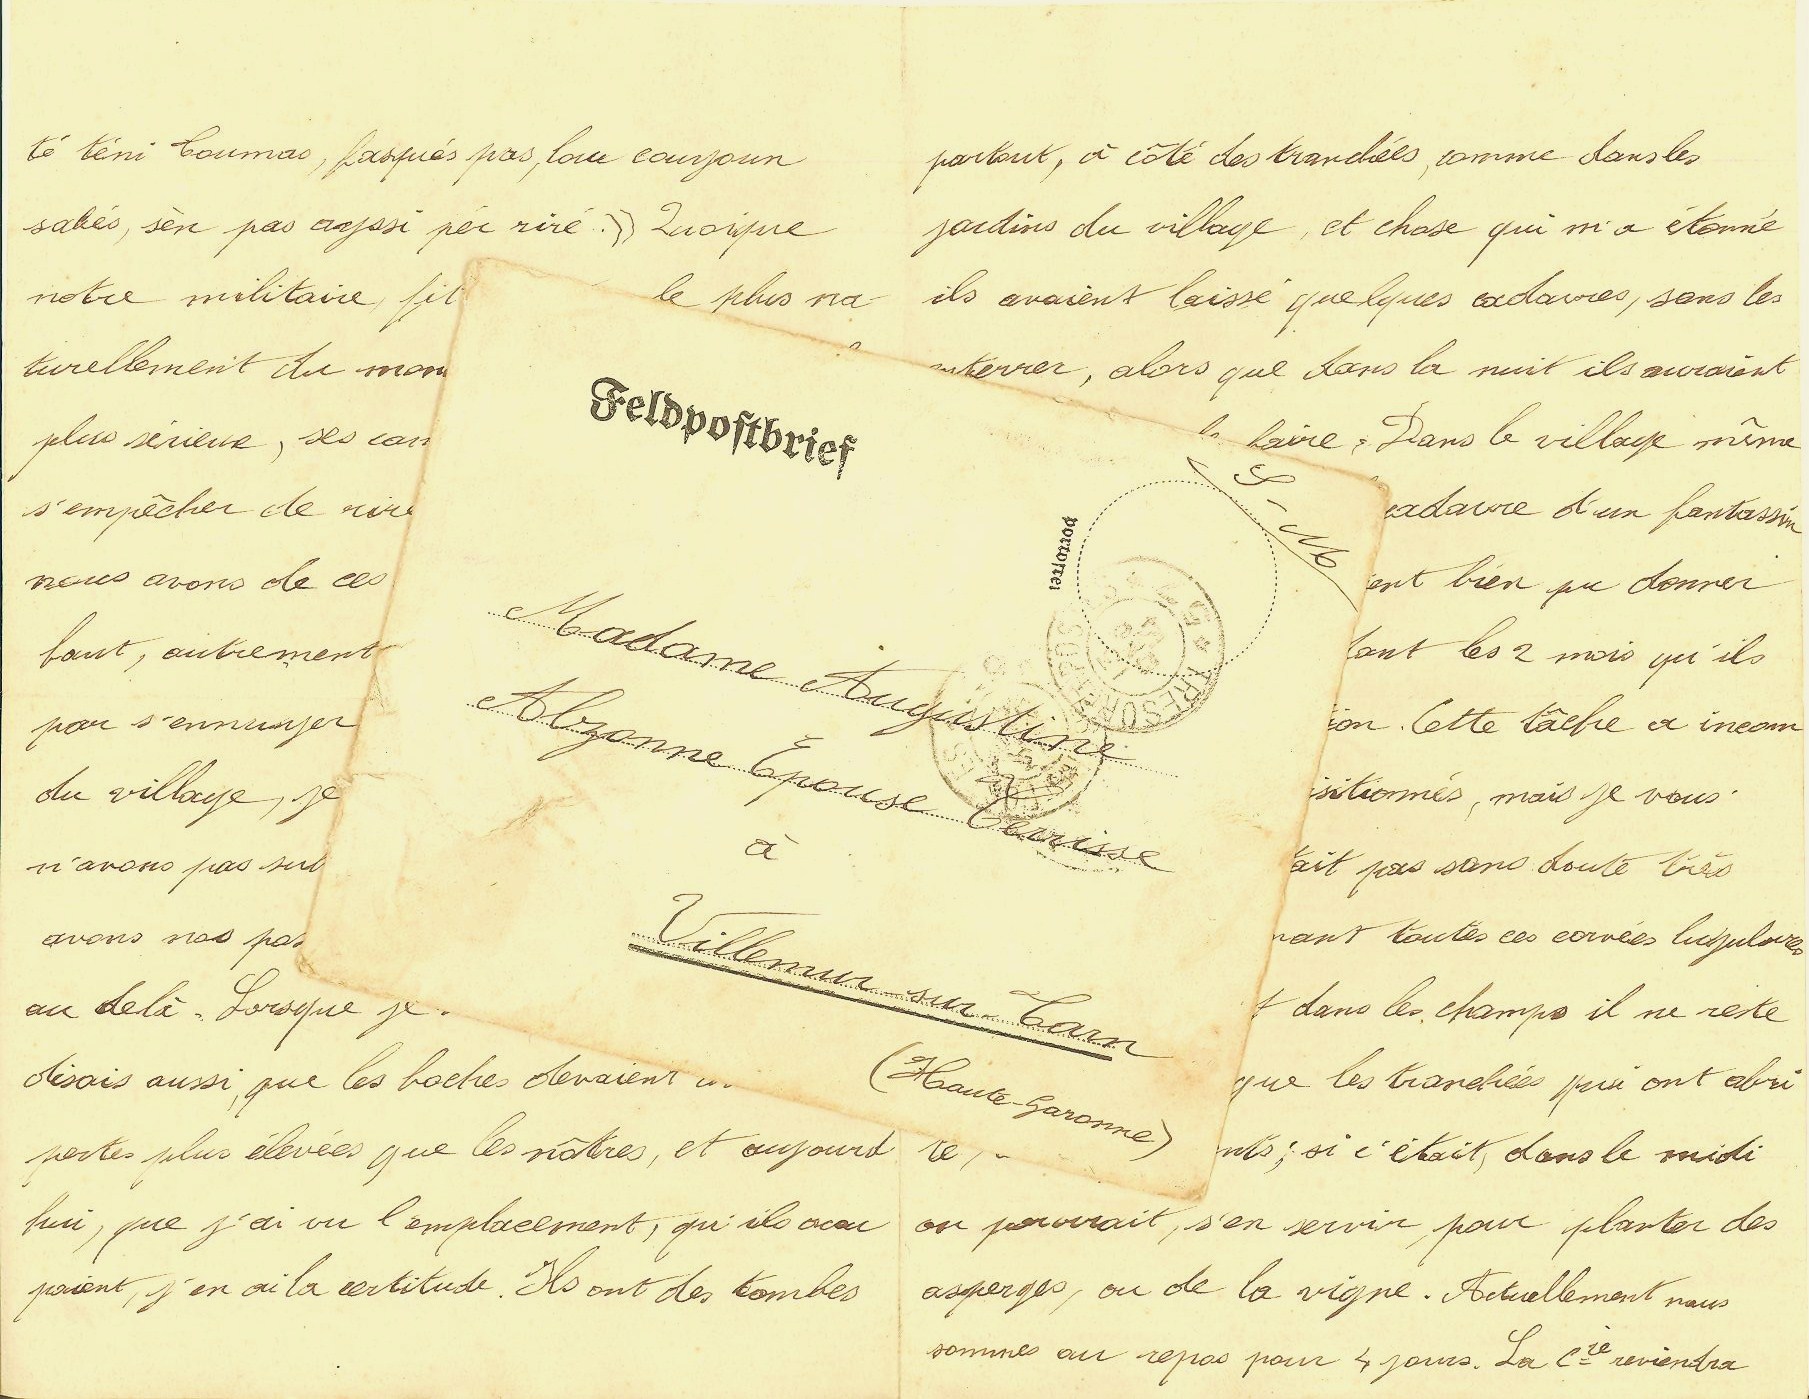 té téni Toumas, fasqués pas, lou couyoun
sabés, sèn pas ayssi pér riré.)) Quoique
notre militaire, fit le plus na-
turellement du mon
plus sérieux, ses cam
s'empêcher de rire
nous avons de ces
faut, autrement
par s'ennuyer
du village, je
n'avons pas sub
avons nos pas
au delà. Lorsque je
disais aussi, que les boches devaient
pertes plus élevées que les nôtres, et aujourd
hui, que j'ai vu l'emplacement, qu'ils occu
paient, j'en ai la certitude. Ils ont des tombes
partout, à côté des tranchées, comme dans les
jardins du village, et chose qui m'a étonné
ils avaient laissé quelques cadavres, sans les
enterrer, alors que dans la nuit ils auraient
le faire. Dans le village même
cadavre d'un fantassin
ent bien pu donner
dant les 2 mois qu'ils
ion. Cette tâche a incom
isitionnés, mais je vous
ait pas sans doute très
nant toutes ces corvées lugubres
t dans les champs il ne reste
que les tranchées qui ont abri
té, nts; si c'était, dans le midi
on pourrait, s'en servir, pour planter des
asperges, ou de la vigne. Actuellement nous
sommes au repos pour 4 jours. La Cie reviendra
Feldpostbrief
S-M
portofrei
TRESOR ET POSTES
Madame Augustine
Abzonne Epouse Terrisse
à
Villemur sur-Tarn
(Haute-Garonne)